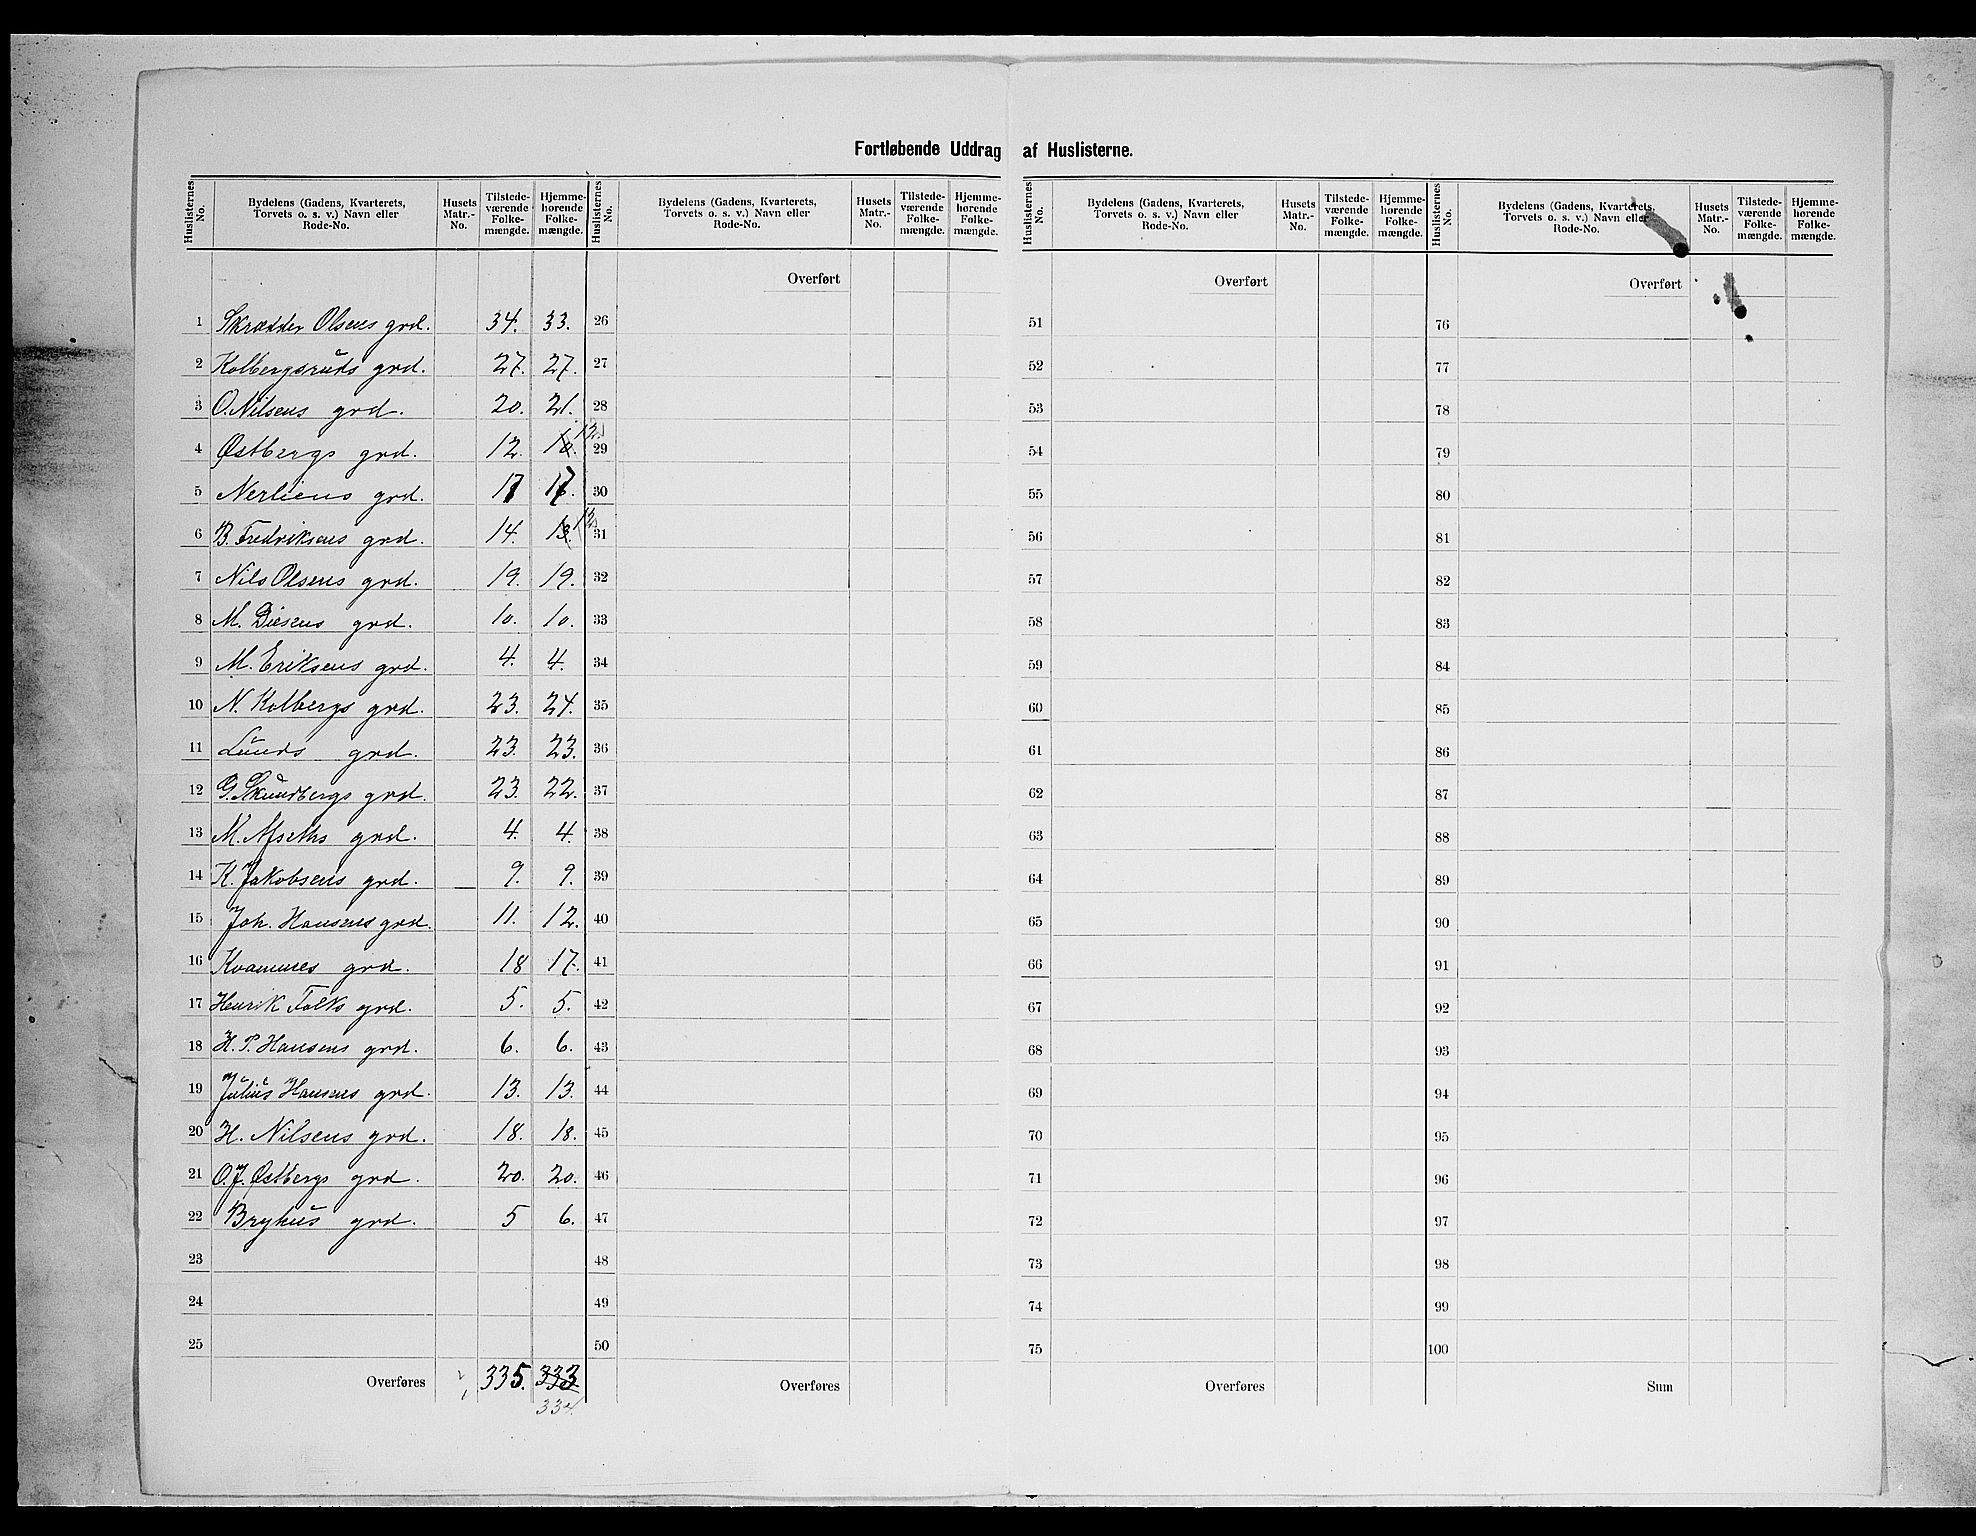 Fortløbende Uddrag af Huslisterne.
Huslisternes No. | Bydelens (Gadens, Kvarterets, Torvets o. s. v.) Navn eller Rode-No. | Husets Matr.-No. | Tilstede-værende Folke-mængde. | Hjemme-hørende Folke-mængde. | Huslisternes No. | Bydelens (Gadens, Kvarterets, Torvets o. s. v.) Navn eller Rode-No. | Husets Matr.-No. | Tilstede-værende Folke-mængde. | Hjemme-hørende Folke-mængde. | Huslisternes No. | Bydelens (Gadens, Kvarterets, Torvets o. s. v.) Navn eller Rode-No. | Husets Matr.-No. | Tilstede-værende Folke-mængde. | Hjemme-hørende Folke-mængde. | Huslisternes No. | Bydelens (Gadens, Kvarterets, Torvets o. s. v.) Navn eller Rode-No. | Husets Matr.-No. | Tilstede-værende Folke-mængde. | Hjemme-hørende Folke-mængde.
Overført Overført Overført
1 Skrædder Olsens grd. 34. 33. 26 51 76
2 Kolbergsruds grd. 27. 27. 27 52 77
3 O. Nilsens grd. 20. 21. 28 53 78
4 Østbergs grd. 12. 12. 29 54 79
5 Nerliens grd. 17 17. 30 55 80
6 B. Fredriksens grd. 14. 13. 12. 31 56 81
7 Nils Olsens grd. 19. 19. 32 57 82
8 M. Diesens grd. 10. 10. 33 58 83
9 M. Eriksens grd. 4. 4. 34 59 84
10 N. Kolbergs grd. 23. 24. 35 60 85
11 Lunds grd. 23. 23. 36 61 86
12 G. Skundbergs grd. 23. 22. 37 62 87
13 M. grd. 4. 4. 38 63 88
14 K. Jakobsens grd. 9. 9. 39 64 89
15 Joh. Hansens grd. 11. 12. 40 65 90
16 Kvammes grd. 18 17. 41 66 91
17 Henrik Falks grd. 5. 5. 42 67 92
18 H. P. Hansens grd. 6. 6. 43 68 93
19 Julius Hansens grd. 13. 13. 44 69 94
20 H. Nilsens grd. 18. 18. 45 70 95
21 O. J. Østbergs grd. 20. 20. 46 71 96
22 Bryhus grd. 5 6. 47 72 97
23 48 73 98
24 49 74 99
25 50 75 100
Overføres 335. 333 Overføres Overføres Sum
334.